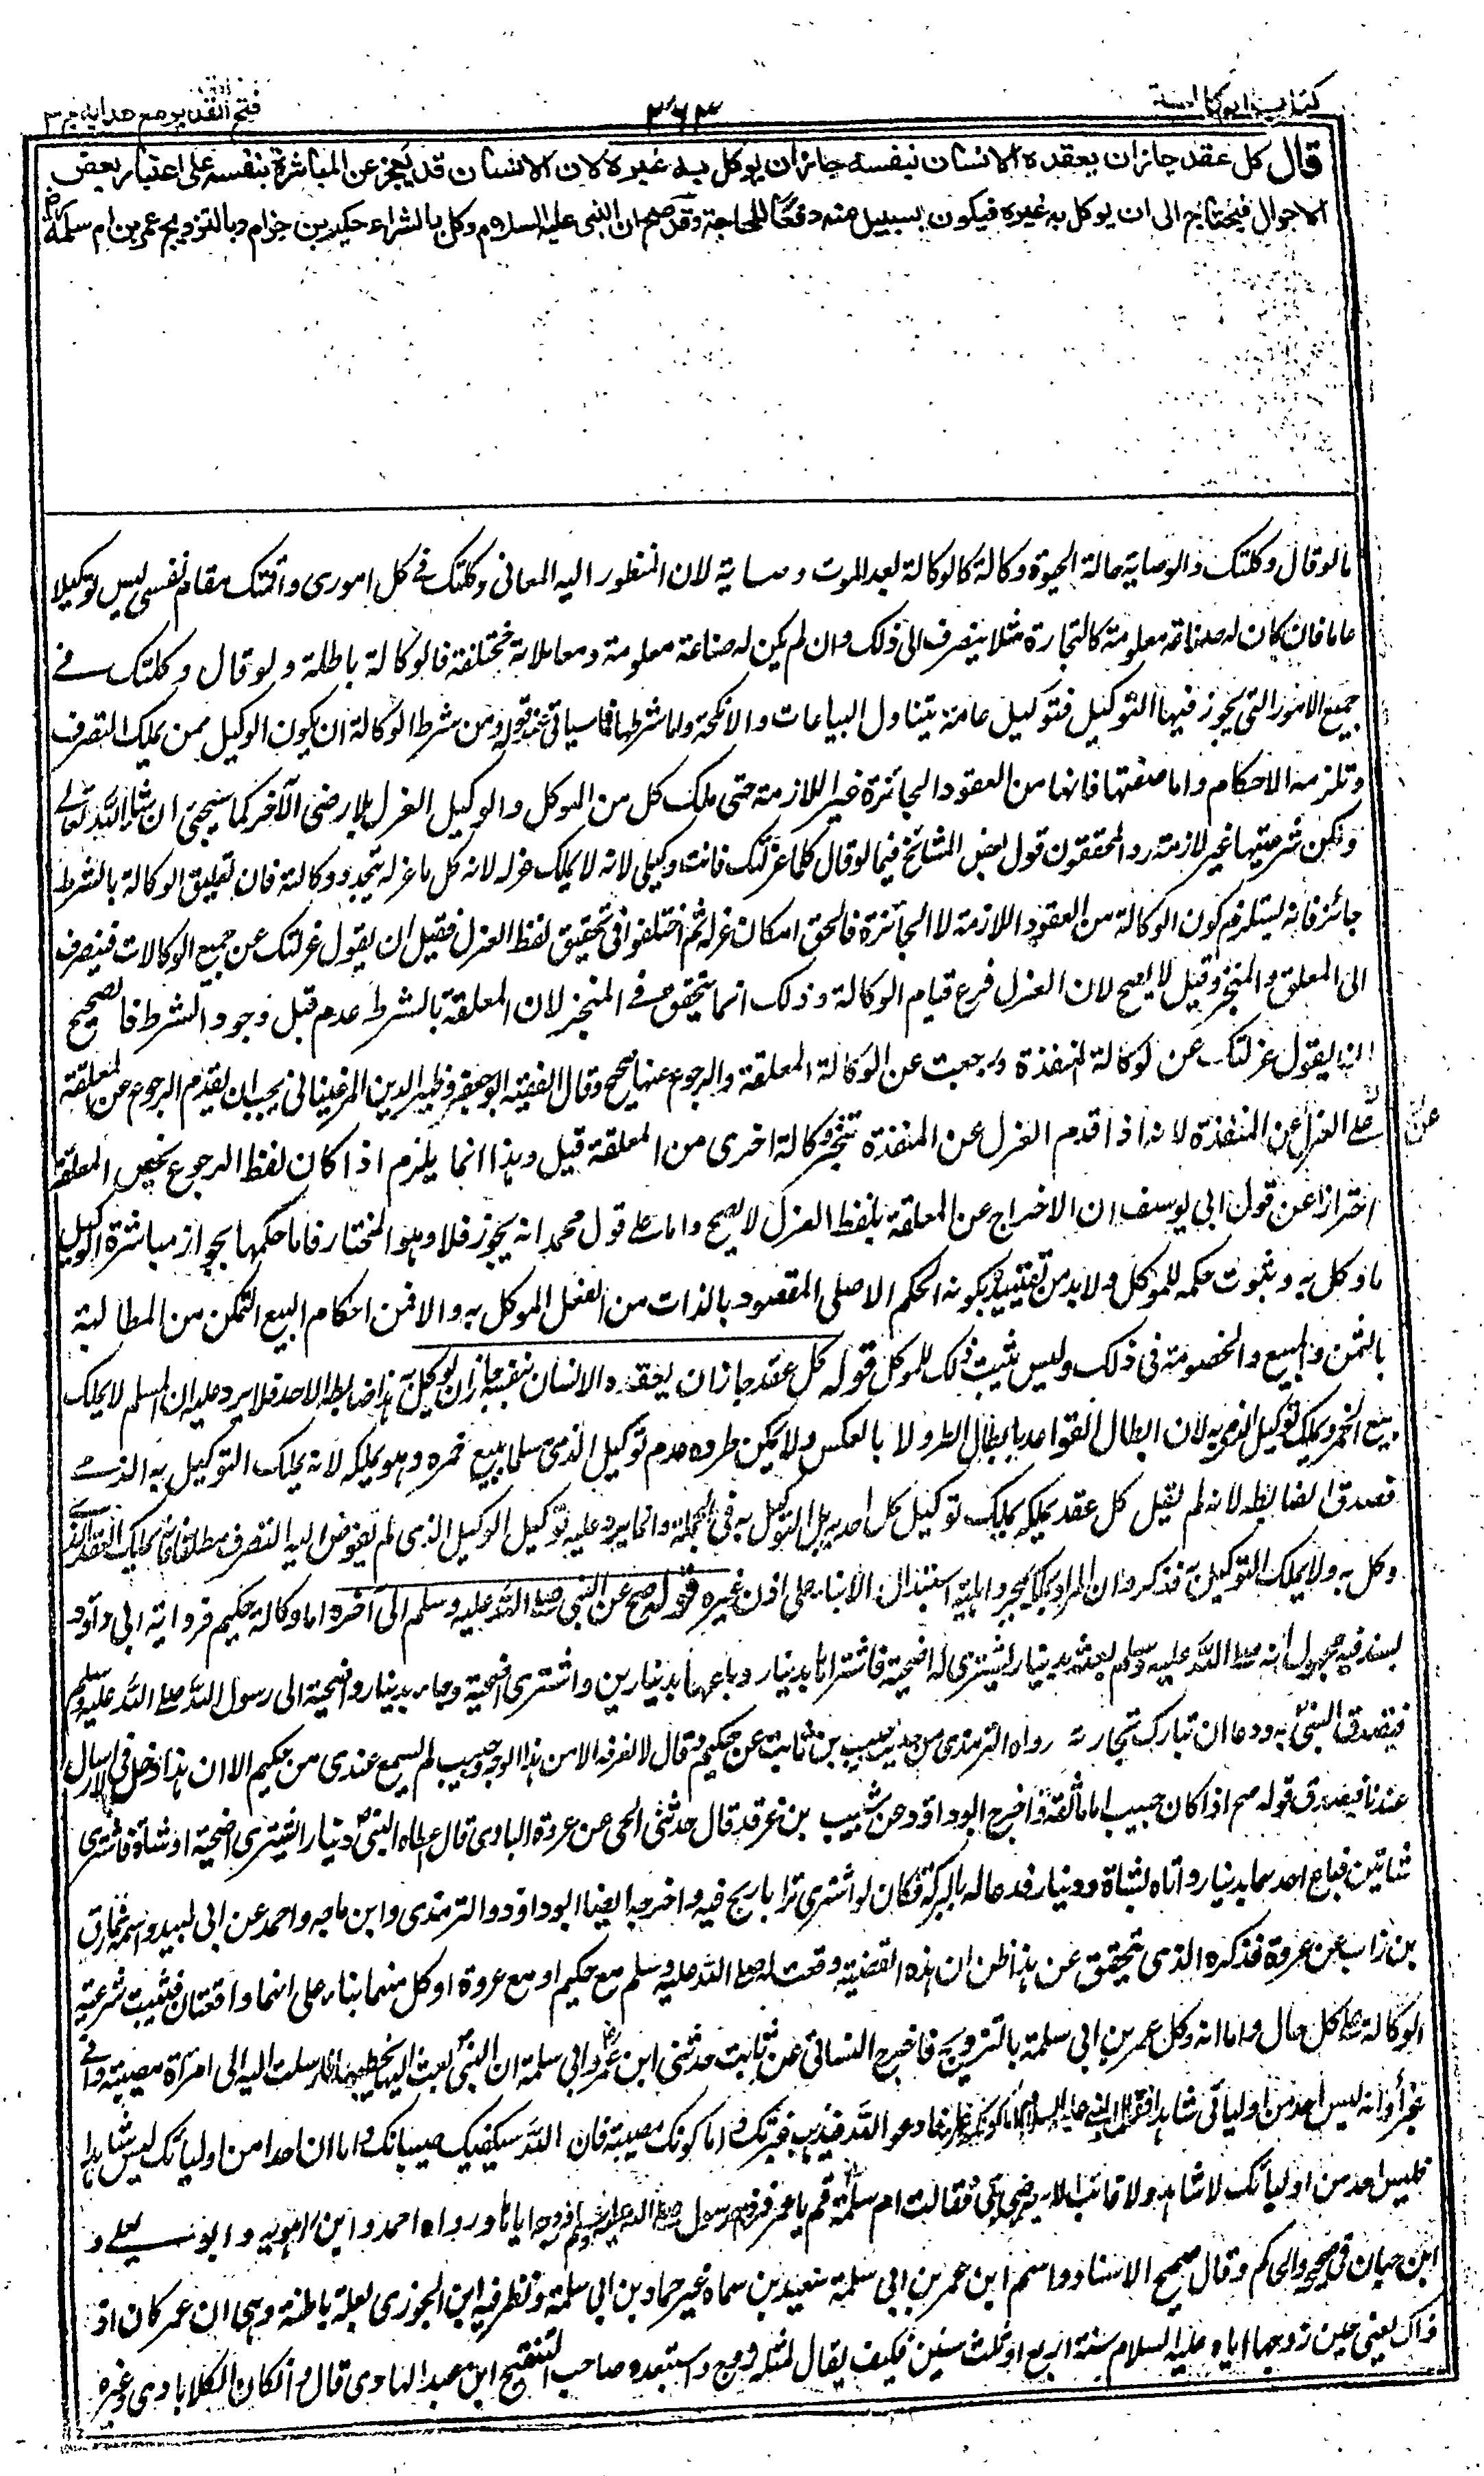 كتاب الوكالة
٣٦٣
فتح القدير مع هدايه ج ٣
قال كل عقد جاز ان يعقده الانسان بنفسه جاز ان يوكل به غيره لان الانسان قد يعجز عن المباشرة بنفسه على اعتبار بعض
الاحوال فيحتاج الى ان يوكل به غيره فيكون بسبيل منه دفعًا للحاجة وقد صح ان النبى عليه السلام وكل بالشراء حكيم بن حزام وبالتزويج عمر بن ام سلمة
ما لو قال وكلتك والوصاية حالة الحيوة وكالة كالوكالة بعد الموت وصاية لان المنظور اليه المعانى وكلتك فى كل امورى واقمتك مقام نفسى ليس توكيلا
عاما فان كان له صناعة معلومة كالتجارة مثلا ينصرف الى ذلك وان لم يكن له صناعة معلومة ومعاملاته مختلفة فالوكالة باطلة ولو قال وكلتك فے
جميع الامور التى يجوز فيها التوكيل فتوكيل عامة يتناول البياعات والانكحة واما شرطها فما سياتى عند قوله ومن شرط الوكالة ان يكون الوكيل ممن يملك التصرف
وتلزمه الاحكام واما صفتها فانها من العقود الجائزة غير اللازمة حتى ملك كل من الموكل والوكيل العزل بلا رضى الآخر كما سيجئ ان شاء الله تعالے
ولكن شرعيتها غير لازمة رد المحققون قول بعض المشائخ فيما لو قال كلما عزلتك فانت وكيلى لانه لا يملك عزله لانه كل ما عزله تجدد وكالته فان تعليق الوكالة بالشرط
جائز فانه يستلزم كون الوكالة من العقود اللازمة لا الجائزة فالحق امكان عزله ثم اختلفوا فى تحقيق لفظ العزل فقيل ان يقول عزلتك عن جميع الوكالات فينصرف
الى المعلق والمنجز وقيل لا يصح لان العزل فرع قيام الوكالة وذلك انما يتحقق فے المنجز لان المعلقة بالشرط عدم قبل وجود الشرط فالصحيح
ان يقول عزلتك عن الوكالة المنفذة ورجعت عن الوكالة المعلقة والرجوع عنها صحيح وقال الفقيه ابو جعفر وظهير الدين المرغينانى يجب ان يقدم الرجوع عن المعلقة
علے العزل عن المنفذة لانه اذا قدم العزل عن المنفذة تنجز وكالة اخرى من المعلقة قيل وهذا انما يلزم اذا كان لفظ الرجوع يخص المعلقة
احترازا عن قول ابى يوسف ان الاخراج عن المعلقة بلفظ العزل لا يصح واما علے قول محمد انه يجوز فلا وهو المختار فاما حكمها بجواز مباشرة الوكيل
ما وكل به وثبوت حكمه للموكل ولا بد من تقييده بكونه الحكم الاصلى المقصود بالذات من الفعل الموكل به والا فمن احكام البيع التمكن من المطالبة
بالثمن والمبيع والخصومة فى ذلك وليس يثبت ذلك للموكل قوله كل عقد جاز ان يعقده الانسان بنفسه جاز ان يوكل به هذا ضابط لا حد فلا يرد عليه ان المسلم لا يملك
بيع الخمر ويملك توكيل الذمى به لان ابطال القواعد بابطال الطرد لا بالعكس ولا يمكن طرده عدم توكيل الذمى مسلما ببيع خمره وهو يملكه لانه يملك التوكيل به الذمے
فصدق الضابطه لانه لم يقل كل عقد يملكه يملك توكيل كل احد به بل التوكيل به فى الجملة وانما يرد عليه توكيل الوكيل الذى لم يفوض اليه التصرف مطلقا فانه يملك العقد الذے
وكل به ولا يملك التوكيل به فذكروا ان المراد يملكه بمجرد اهليته استبدالا لا بناء على اذن غيره قوله صح عن النبى صلے الله عليه وسلم الى آخره اما وكالة حكيم فرواية ابى داؤد
بسند فيه مجهول انه صلے الله عليه وسلم بعثه بدينار ليشترى له اضحية فاشتراها بدينار وباعها بدينارين واشترى اضحية وجاء بدينار واضحية الى رسول الله صلے الله عليه وسلم
فتصدق النبىؐ به ودعا ان تبارك تجارته رواه الترمذى من حديث حبيب بن ثابت عن حكيم وقال لا نعرفه الا من هذا الوجه وحبيب لم يسمع عندى من حكيم الا ان هذا دخل فى الارسال
عندنا فيصدق قوله صح اذا كان حبيب اماما ثقة واخرج ابو داؤد عن شبيب بن غرقد قال حدثنى الحى عن عروة البارقى قال اعطاه النبىؐ دينارا ليشترى اضحية او شاة فاشترى
شاتين فباع احدهما بدينار واتاه بشاة ودينار فدعا له بالبركة فكان لو اشترى ترابا ربح فيه واخرجه ايضا ابو داؤد والترمذى وابن ماجه واحمد عن ابى لبيد واسمه لمازة
بن زاب عن عروة فذكره الذى تحقق عن هذا ظن ان هذه القضية وقعت له صلے الله عليه وسلم مع حكيم او مع عروة او كل منهما بناء على انهما واقعتان فثبت شرعية
الوكالة علے كل حال واما انه وكل عمر بن ابى سلمة بالتزويج فاخرج النسائى عن ثابت حدثنى ابن عمر بن ابى سلمة ان النبىؐ بعث اليها يخطبها فارسلت اليه انى امرأة مصبية وانے
غيرأ وانه ليس احد من اوليائى شاهدا فقال النبى عليه السلام اما كونك غيرا فادعو الله فيذهب غيرتك واما كونك مصبية فان الله سيكفيك صبيانك واما ان احدا من اوليائك ليس شاهدا
فليس احد من اوليائك لا شاهد ولا غائب الا يرضى بى فقالت ام سلمة قم يا عمر فزوج رسول الله صلے الله عليه وسلم فزوجه اياها ورواه احمد وابن راهويه وابو يعلے و
ابن حبان فى صحيحه والحاكم وقال صحيح الاسناد واسم ابن عمر بن ابى سلمة سعيد بن سماه غير حماد بن ابى سلمة ونظر فيه ابن الجوزى بعلة باطنة وهى ان عمر كان اذ
ذاك يعنى حين زوجها اياه عليه السلام سنه اربع او ثلث سنين فكيف يقال لمثله زوج واستبعده صاحب التنقيح ابن عبد الهادى قال وان كان الكلاباذى وغيره